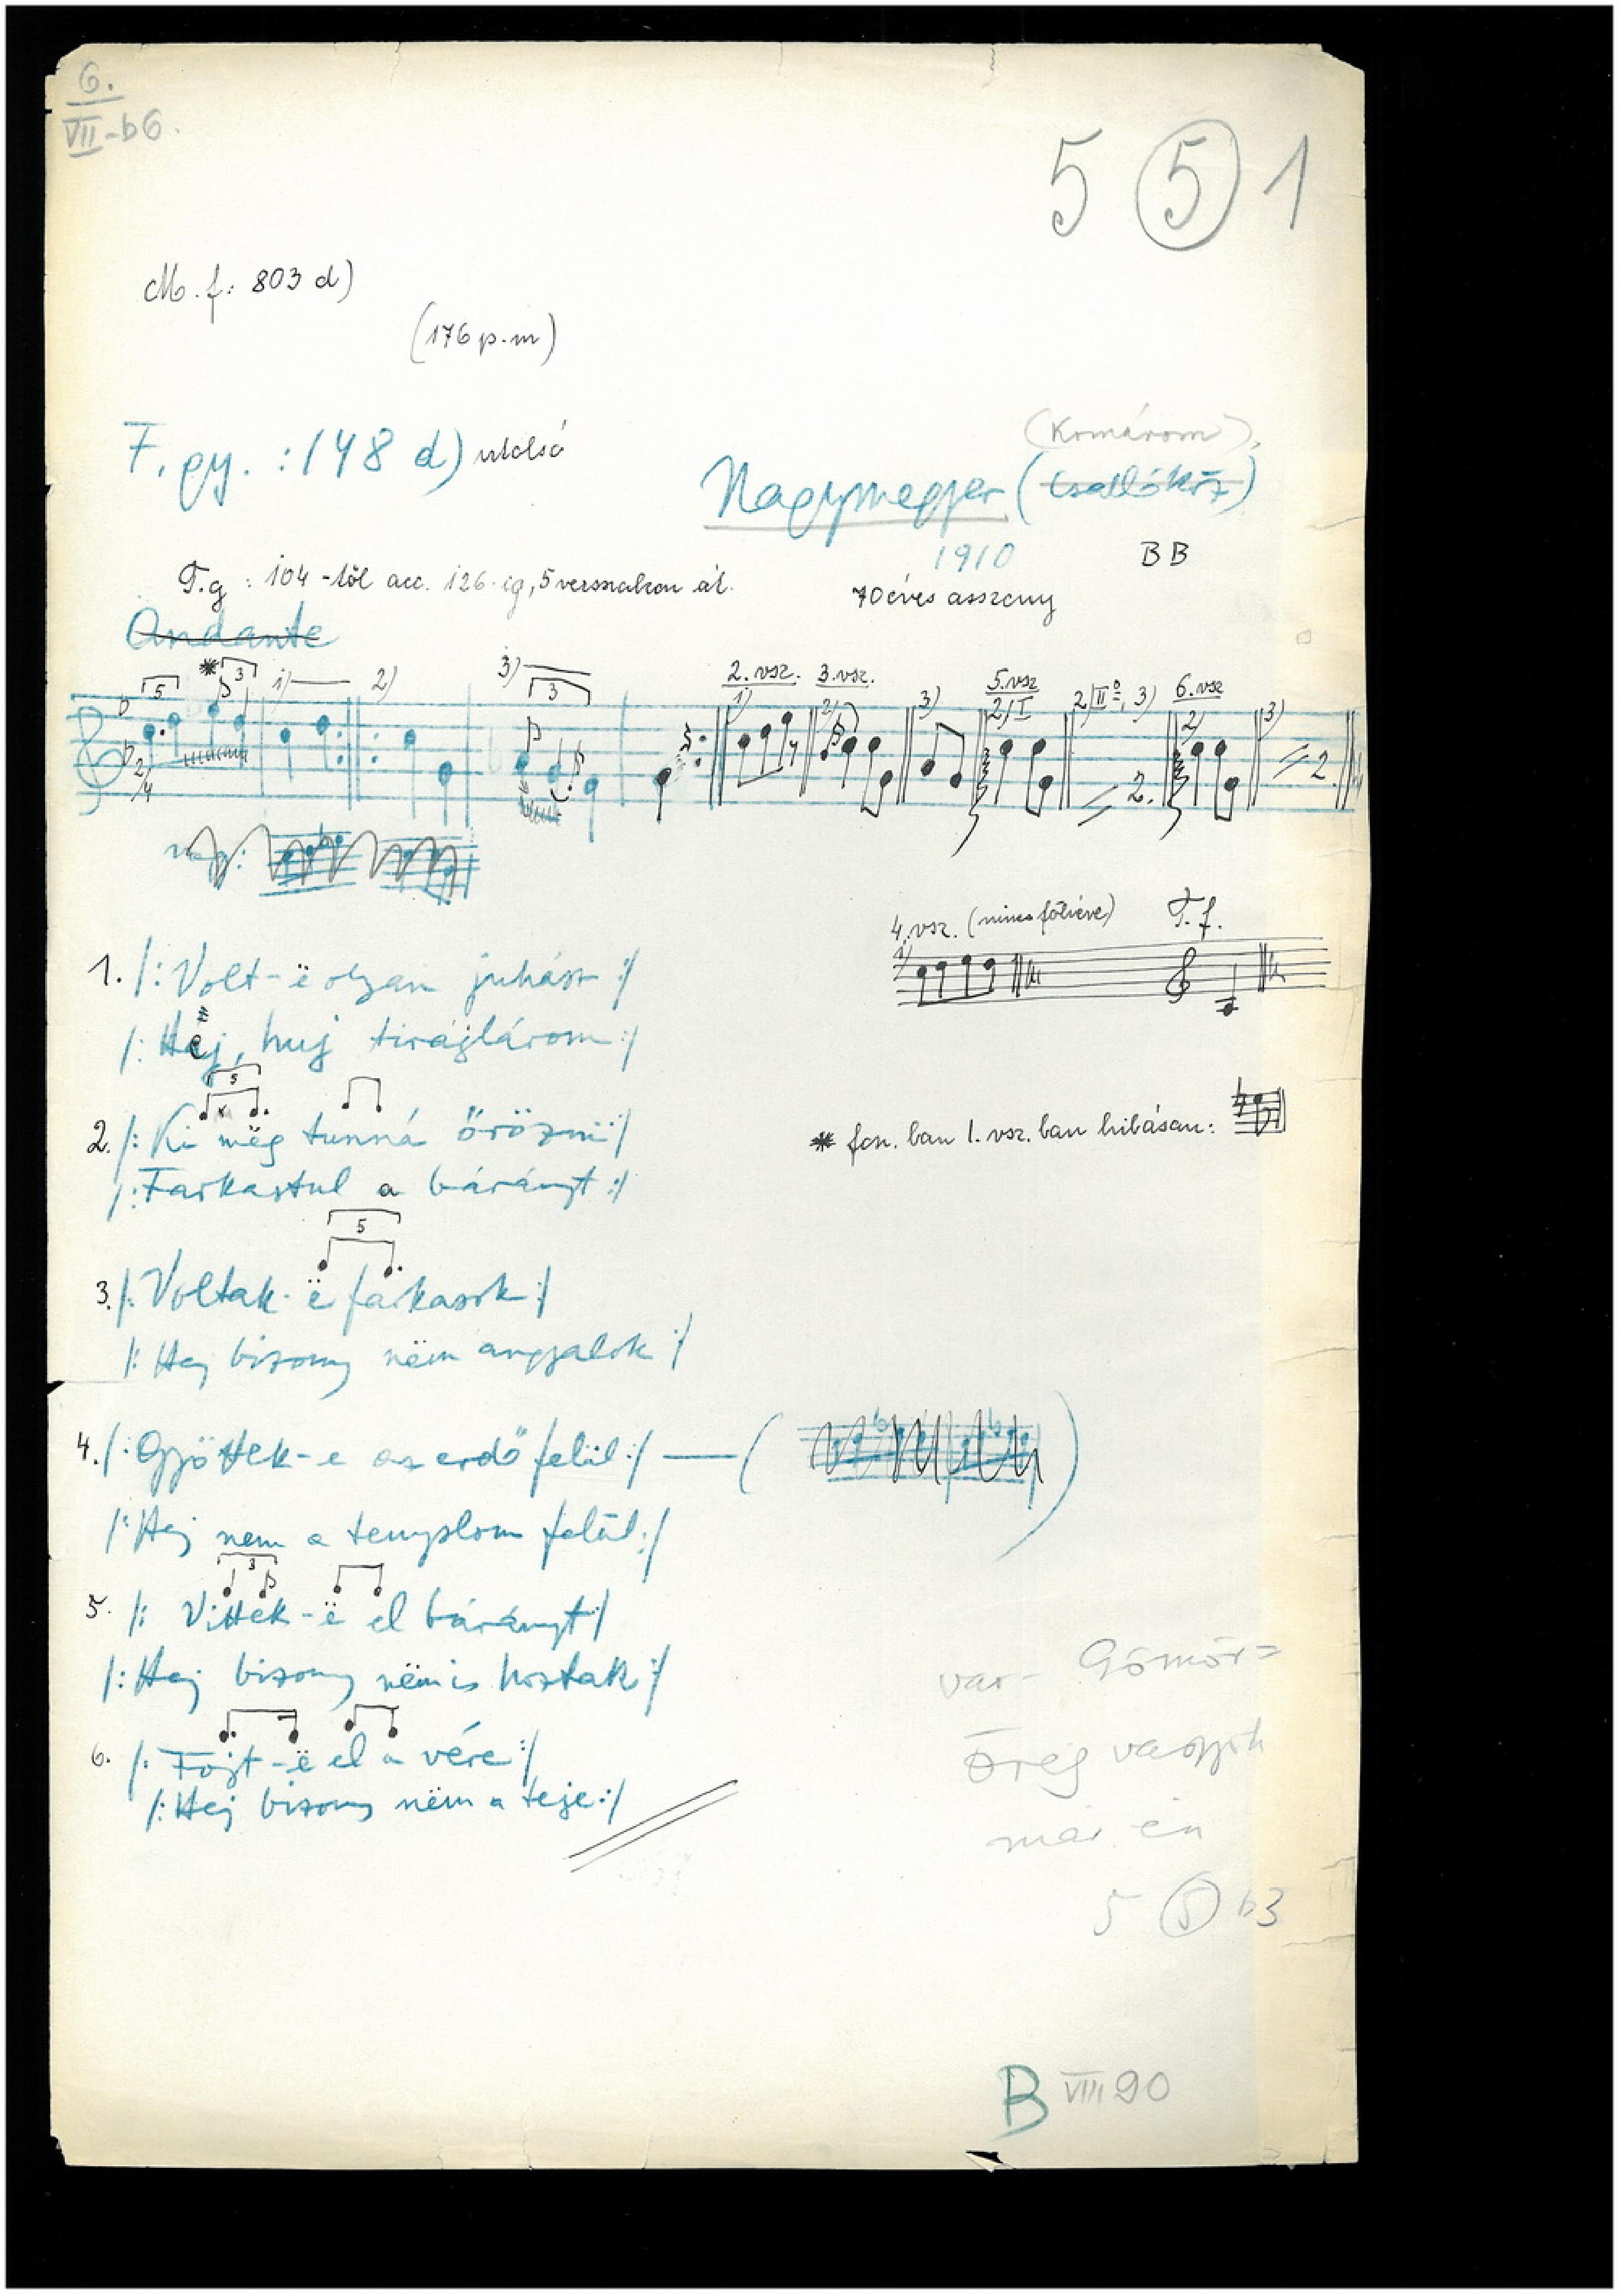 6.
VII-b6.
5 5 1
M. f: 803 d)
(176 p.m)
F. gy. : 148 d) utolsó
(Komárom)
Nagymegyer (Csallóköz)
1910
B B
T.g : 104-től acc. 126-ig, 5 versszakon át.
70 éves asszony
Andante
5 * 3 1) 2) 3) 3
2. vsz. 3. vsz. 5. vsz 6. vsz
1) 2) 3) 2) I 2) II 3) 2) 3)
2/4
2. 2.
4. vsz. (nincs fölvéve) T. f.
1)
1. /: Volt-ë olyan juhász :/
/: Haj, huj tirájlárom :/
5
2. /: Ki mëg tunná őrözni :/
* fon. ban 1. vsz. ban hibásan:
/: Farkastul a bárányt :/
5
3. /: Voltak-ë farkasok :/
/: Hej bizony nëm angyalok :/
4. /: Gyöttek-e az erdő felül :/ — ( )
/: Hej nem a templom felül :/
3
5. /: Vittek-ë el bárányt :/
/: Hej bizony nëm is hoztak :/
6. /: Fojt-ë el a vére :/
/: Hej bizony nëm a teje :/
var- Gömör=
Öreg vagyok
már én
5 5 b3
B VIII 90